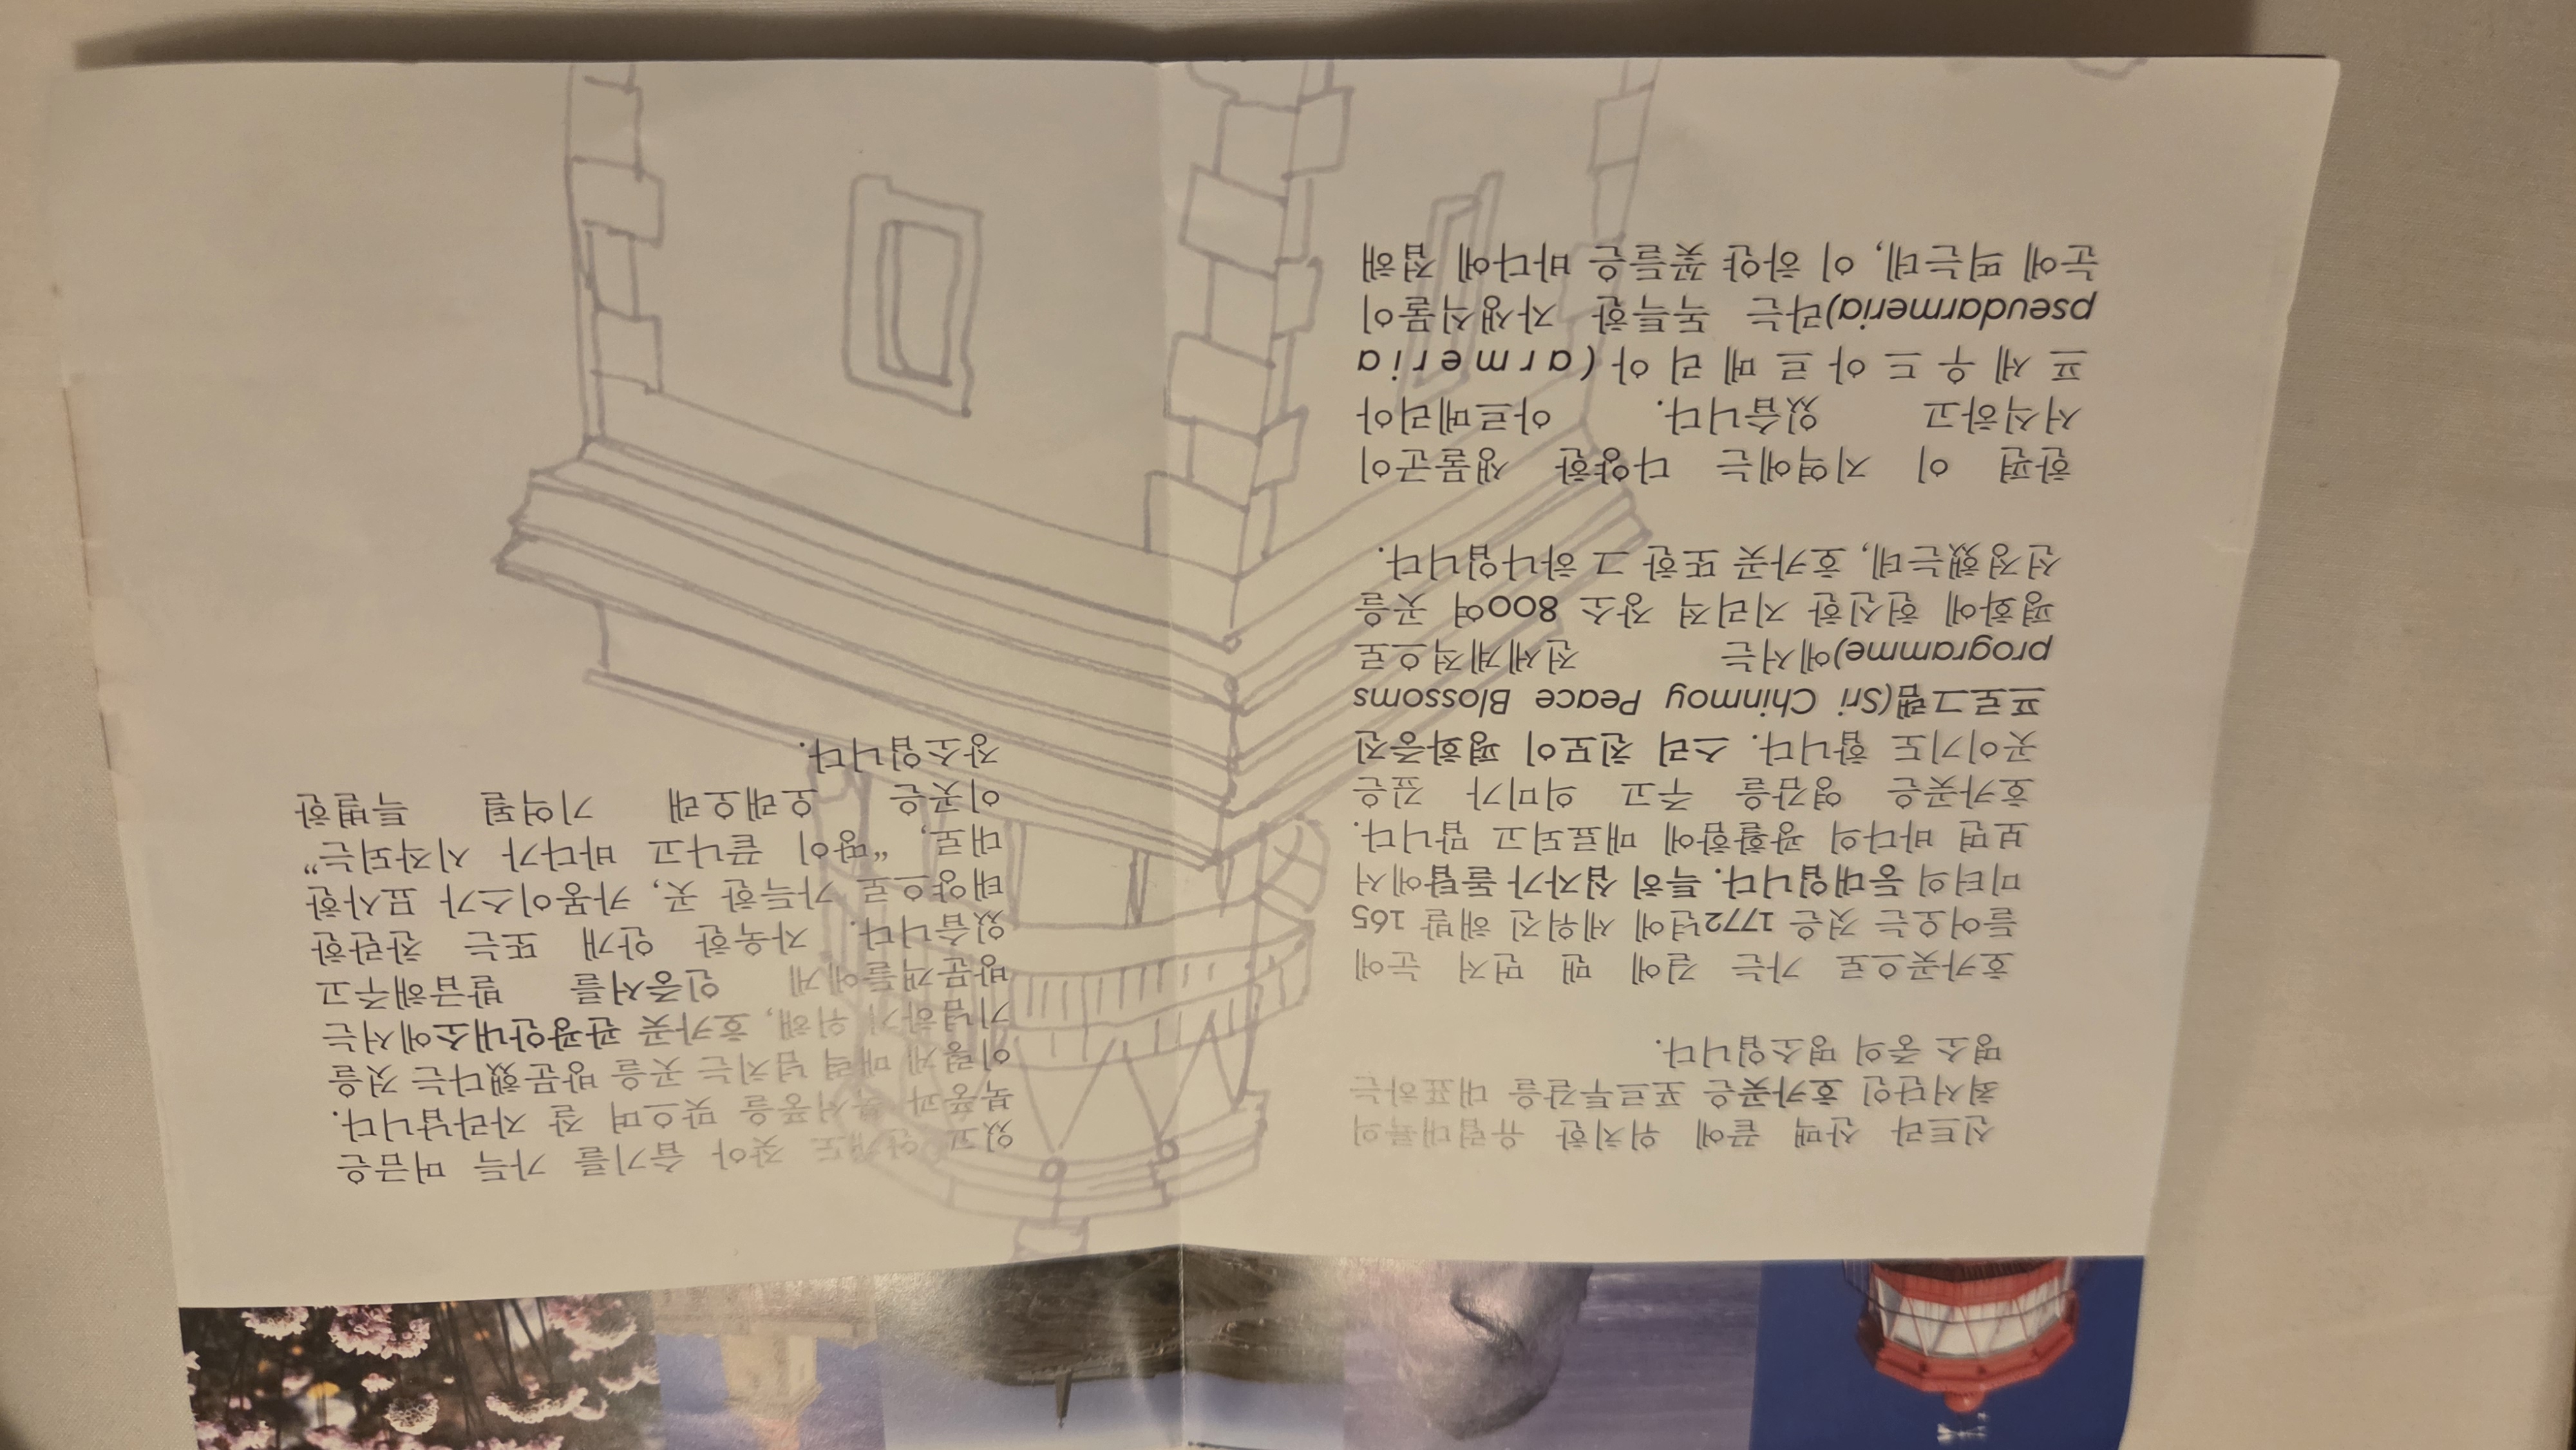 신트라 산맥 끝에 위치한 유럽대륙의
최서단인 호카곶은 포르투갈을 대표하는
명소 중의 명소입니다.
호카곶으로 가는 길에 맨 먼저 눈에
들어오는 것은 1772년에 세워진 해발 165
미터의 등대입니다. 특히 십자가 돌탑에서
보면 바다의 광활함에 매료되고 맙니다.
호카곶은 영감을 주고 의미가 깊은
곳이기도 합니다. 스리 친모이 평화증진
프로그램(Sri Chinmoy Peace Blossoms
programme)에서는 전세계적으로
평화에 헌신한 지리적 장소 800여 곳을
선정했는데, 호카곶 또한 그 하나입니다.
한편 이 지역에는 다양한 생물군이
서식하고 있습니다. 아르메리아
프세우드아르메리아(armeria
pseudarmeria)라는 독특한 자생식물이
눈에 띄는데, 이 하얀 꽃들은 바다에 접해
있고 안개도 잦아 습기를 가득 머금은
북풍과 북서풍을 맞으며 잘 자라납니다.
이렇게 매력 넘치는 곳을 방문했다는 것을
기념하기 위해, 호카곶 관광안내소에서는
방문객들에게 인증서를 발급해주고
있습니다. 자욱한 안개 또는 찬란한
태양으로 가득한 곳, 카몽이스가 묘사한
대로, “땅이 끝나고 바다가 시작되는”
이곳은 오래오래 기억될 특별한
장소입니다.